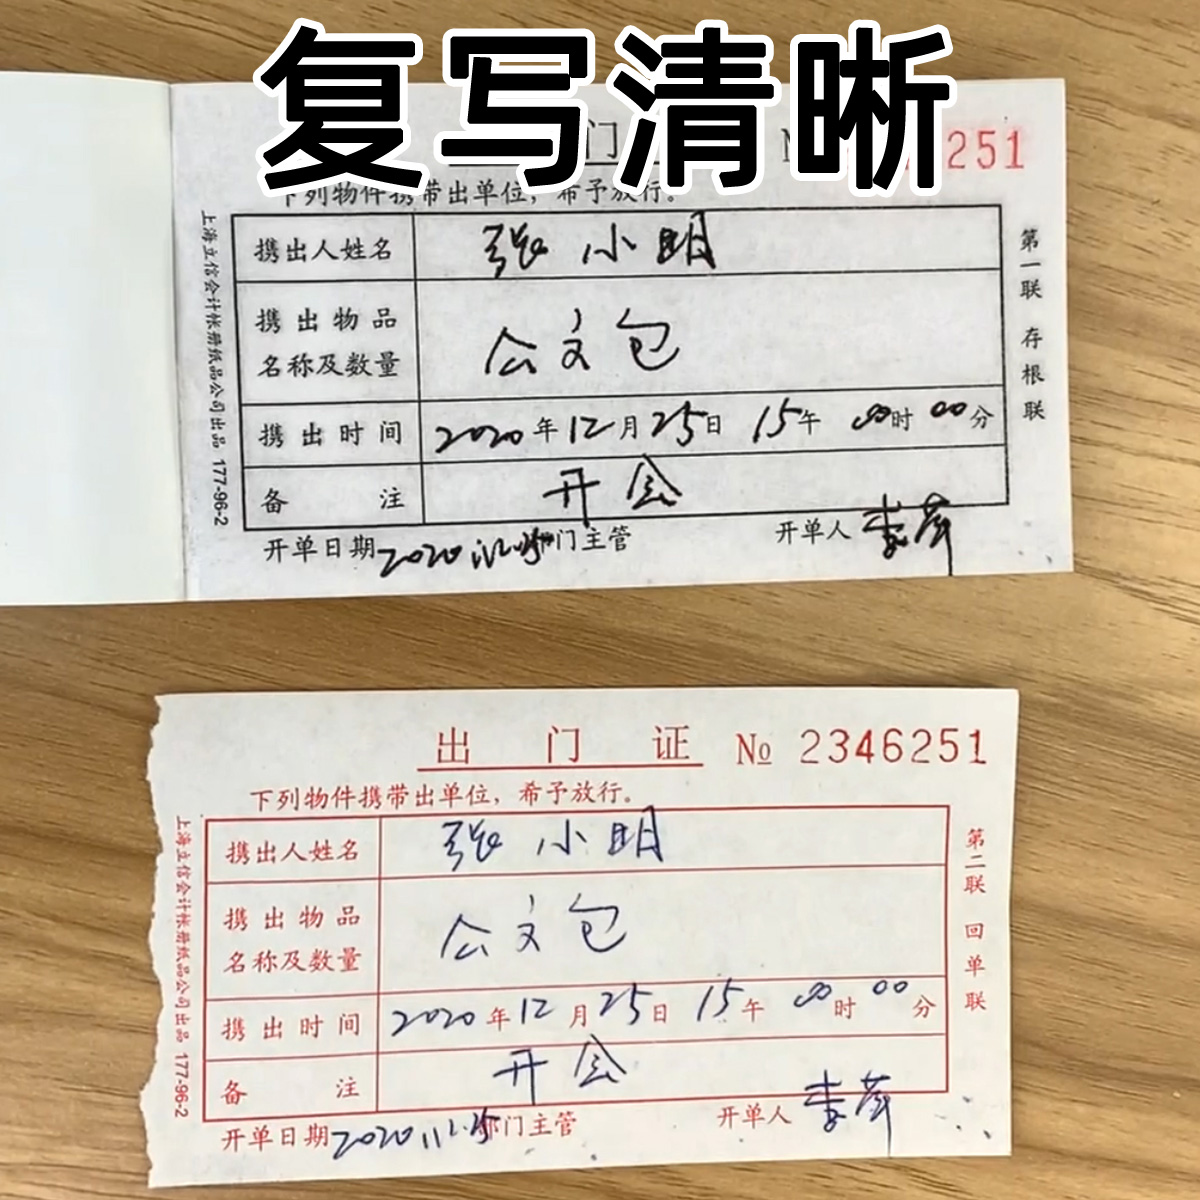 复写清晰
门 251
下列物件携带出单位，希予放行。
携出人姓名 张小明
携出物品
名称及数量 公文包
携出时间 2020年12月25日 15午 00时 00分
备注 开会
开单日期 2020 部门主管 开单人
上海立信会计帐册纸品公司出品 177-96-2
第一联 存根联
出门证 № 2346251
下列物件携带出单位，希予放行。
携出人姓名 张小明
携出物品
名称及数量 公文包
携出时间 2020年12月25日 15午 00时 00分
备注 开会
开单日期 2020 部门主管 开单人
上海立信会计帐册纸品公司出品 177-96-2
第二联 回单联